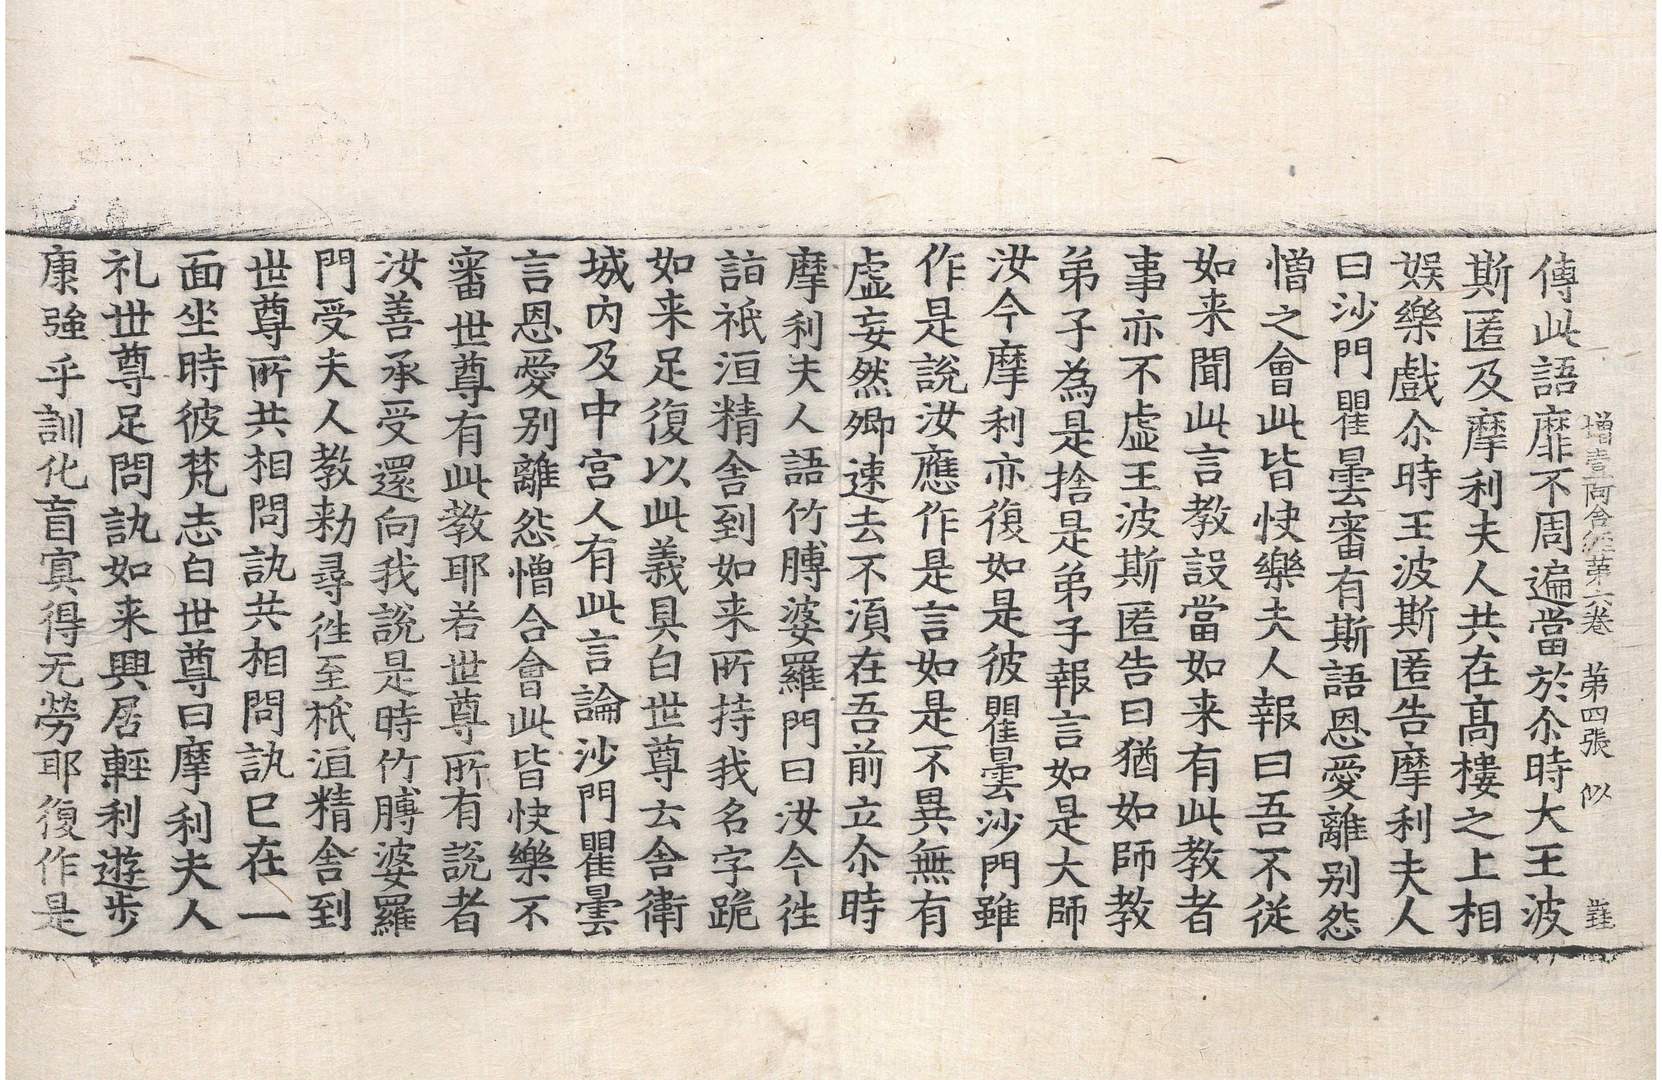 增壹阿含經第六卷 第四張 似
傳此語靡不周遍當於尒時大王波
斯匿及摩利夫人共在高樓之上相
娱樂戲尒時王波斯匿告摩利夫人
曰沙門瞿曇審有斯語恩愛離别怨
憎之會此皆快樂夫人報曰吾不從
如来聞此言教設當如来有此教者
事亦不虛王波斯匿告曰猶如師教
弟子為是捨是弟子報言如是大師
汝今摩利亦復如是彼瞿曇沙門雖
作是說汝應作是言如是不異無有
虛妄然卿速去不湏在吾前立尒時
摩利夫人語竹膊婆羅門曰汝今徃
詣祇洹精舍到如来所持我名字跪
如来足復以此義具白世尊云舍衛
城内及中宫人有此言論沙門瞿曇
言恩愛别離怨憎合會此皆快樂不
審世尊有此教耶若世尊所有說者
汝善承受還向我說是時竹膊婆羅
門受夫人教勑尋徃至祇洹精舍到
世尊所共相問訊共相問訊已在一
面坐時彼梵志白世尊曰摩利夫人
礼世尊足問訊如来興居輕利遊步
康強乎訓化盲冥得无勞耶復作是